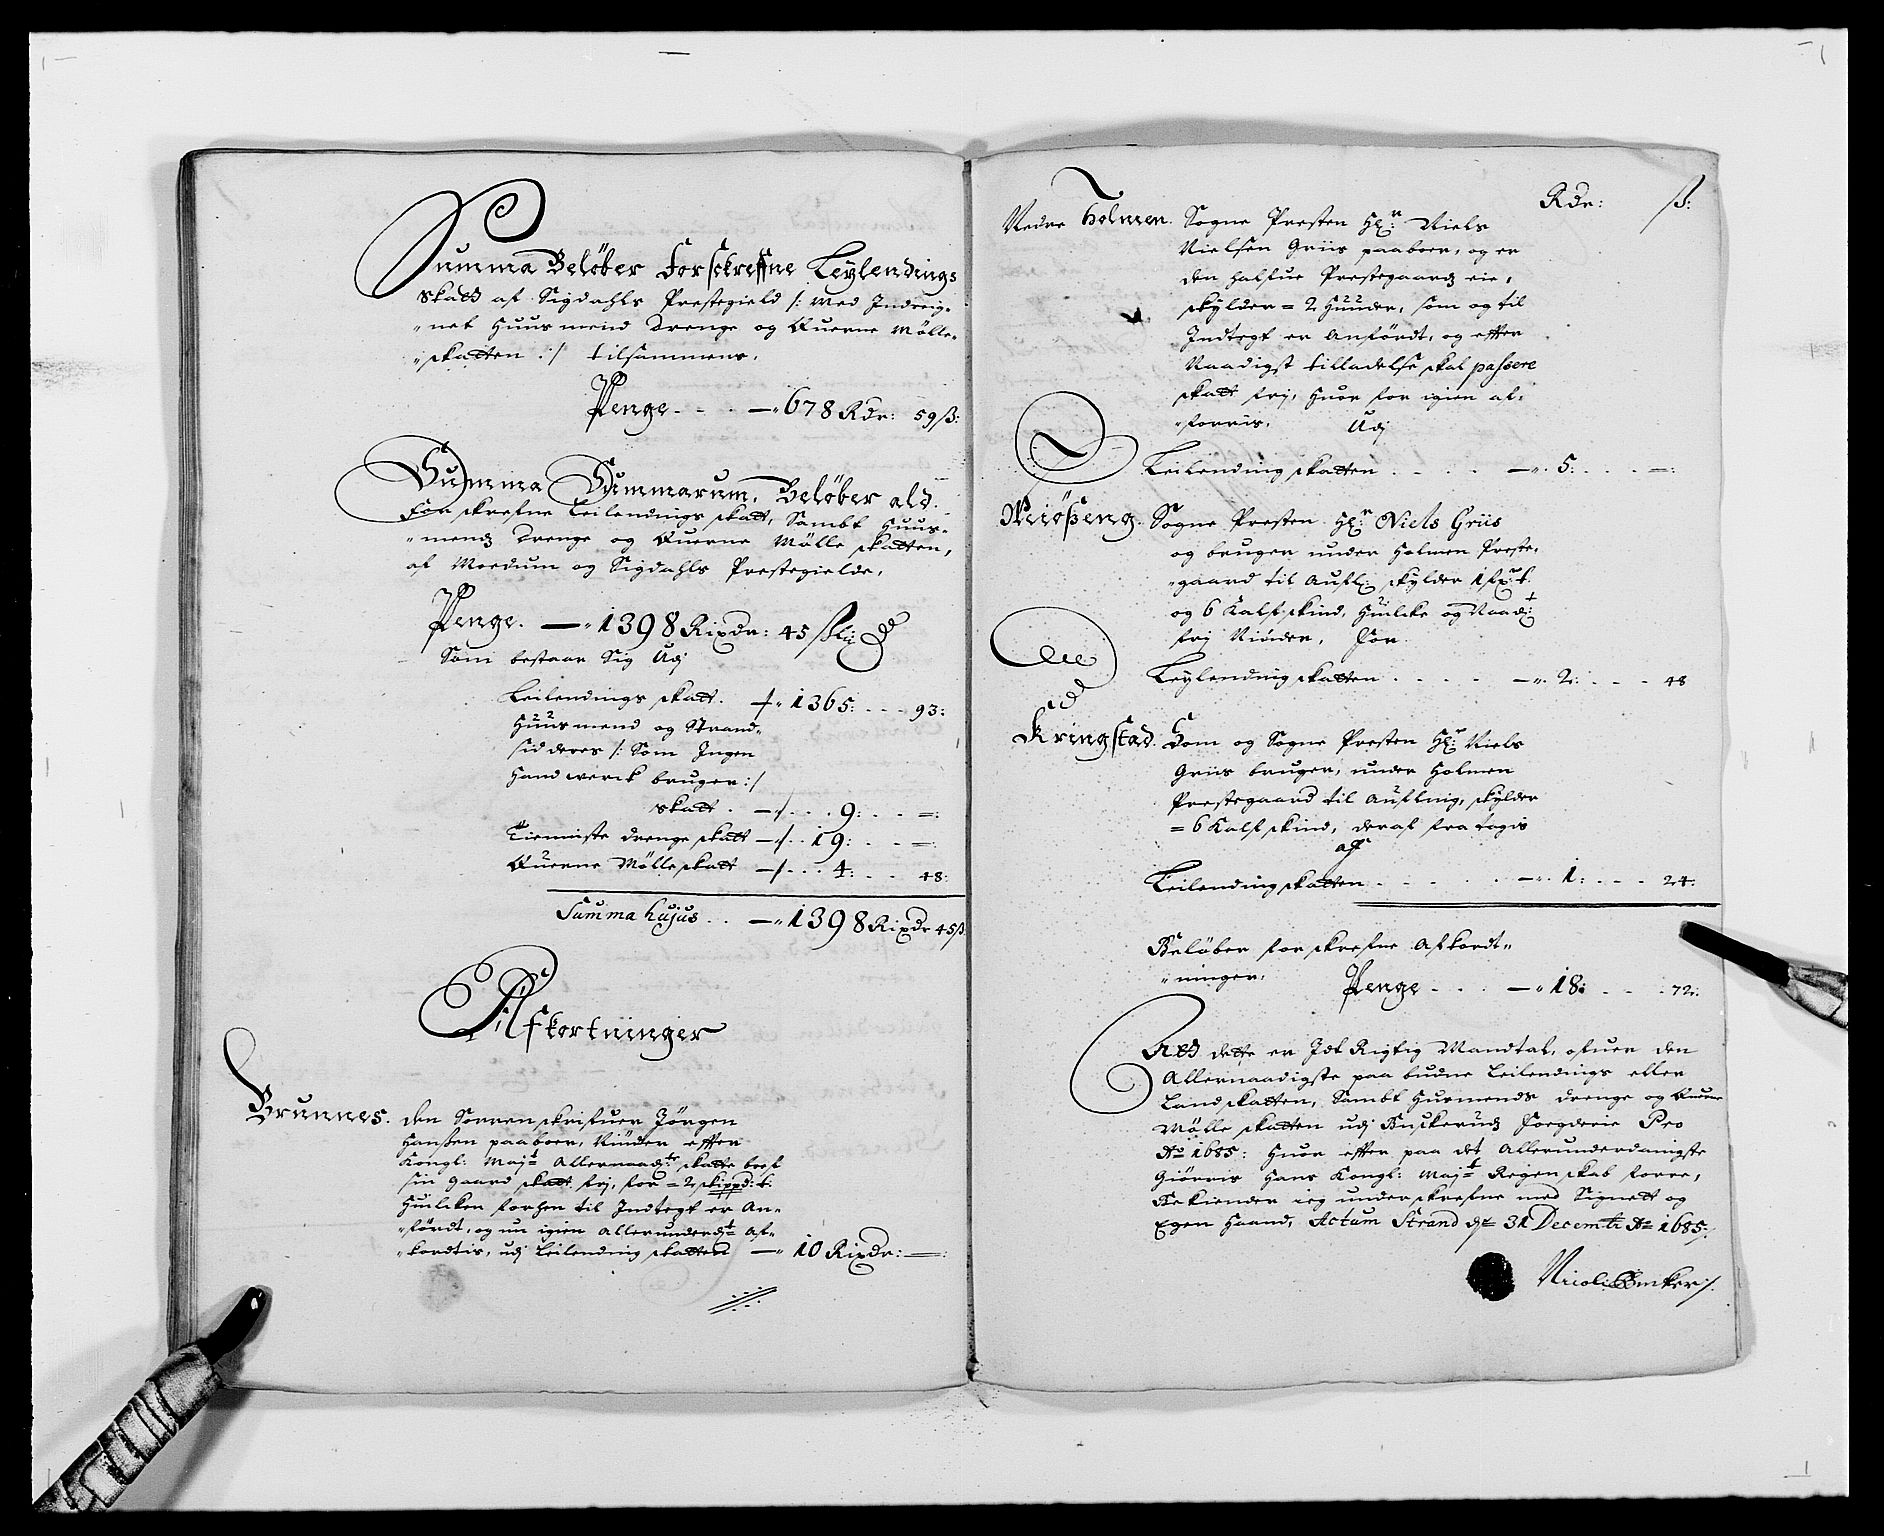 Summa Beløber Forschrefne Leylendings
skatt af Sigdahls Prestegield /: med Indreig-
"net Huusmend Drenge og Querne Mølle-
"skatten :/ tilsammens,
Penge - - - —" 678 Rdr: 59 ß:
Summa Summarum, Beløber ald
Forskrefne Leilendings skatt, Sambt Huus-
"mends Drenge og Querne Mølle skatten,
af Moedum og Sigdahls Prestegielde,
Penge. —" 1398 Rixdr: 45 ßli:
Som bestaar Sig Udj
Leilendings skatt. —" 1365: - - - 93:
Huusmend og Strand-
sidderes /: Som Ingen
Handwerck bruger :/
skatt . —/. . . 9: - - - =:
Tienniste drenge skatt —/. . 19: - - - =:
Querne Mølleskatt —/. . . 4: - - - 48:
Summa hujus . . —" 1398 Rixdr 45 ß
Afkortninger
Brunnes. den Sorrenskrifuer Jørgen
Hansen paaboer, Niuder effter
Kongl: Majts Allernaadste skatte bref
sin gaard skatt frj, for = 2 skippd: t:
Huilcken forhen til Indtegt er An-
"ført, og nu igien allerunderdt af-
"kordtis, udj Leilending skatten —" 10 Rixdr: —:
Rdr: ß:
Nedre Holmen. Sogne Presten Hr: Niels
Nielsen Griis paaboer, og er
den halfue Prestegaards eie,
skylder = 2 Huuder, som og til
Indtegt er Anførdt, og effter
Naadigst tilladelse skal passere
skatt frj, Huor for igien af-
"korris. Udj
Leilending skatten . - - - - —". 5: - - - =:
Miøßeng. Sogne Presten Hr: Niels Griis
og bruger under Holmen Preste-
"gaard til Aufl: skylder 1 t.
og 6 Kalfskind, Huilcke og Naadt:
frj Niuder, For
Leylending skatten - - - - - —". 2: - - - 48
Kringstad. Som og Sogne Presten Hr: Niels
Griis bruger, under Holmen
Prestegaard til Aufling, skylder
= 6 Kalfskind, deraf fra tagis
aff
Leilending skatten - - - - - —". 1: - - - 24:
Beløber forskrefne Afkordt-
"ninger,
Penge - - - —" 18: - - - 72:
At dette er Idt Rigtig Mandtal, ofuer den
Allernaadigste paa budne Leilendings eller
Landskatten, Sambt Husmends drenge og Querne
Mølle skatten udj Buskeruds Foegderie Pro
Ao 1685: Huor effter paa det Allerunderdanigste
Giørris Hans Kongl: Mayts Regenskab forre,
Bekiender ieg underskrefne med Signett og
Egen Haand, Actum Strand d 31 Decembr Ao 1685.